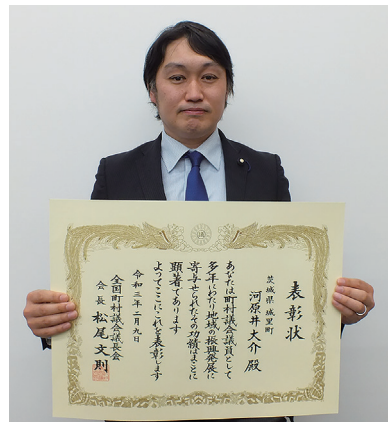 表彰状
茨城県 城里町
河原井大介 殿
あなたは町村議会議員として
多年にわたり地域の振興発展に
寄与せられたその功績はまことに
顕著であります
よってここにこれを表彰します
令和三年二月九日
全国町村議会議長会
会長 松尾文則